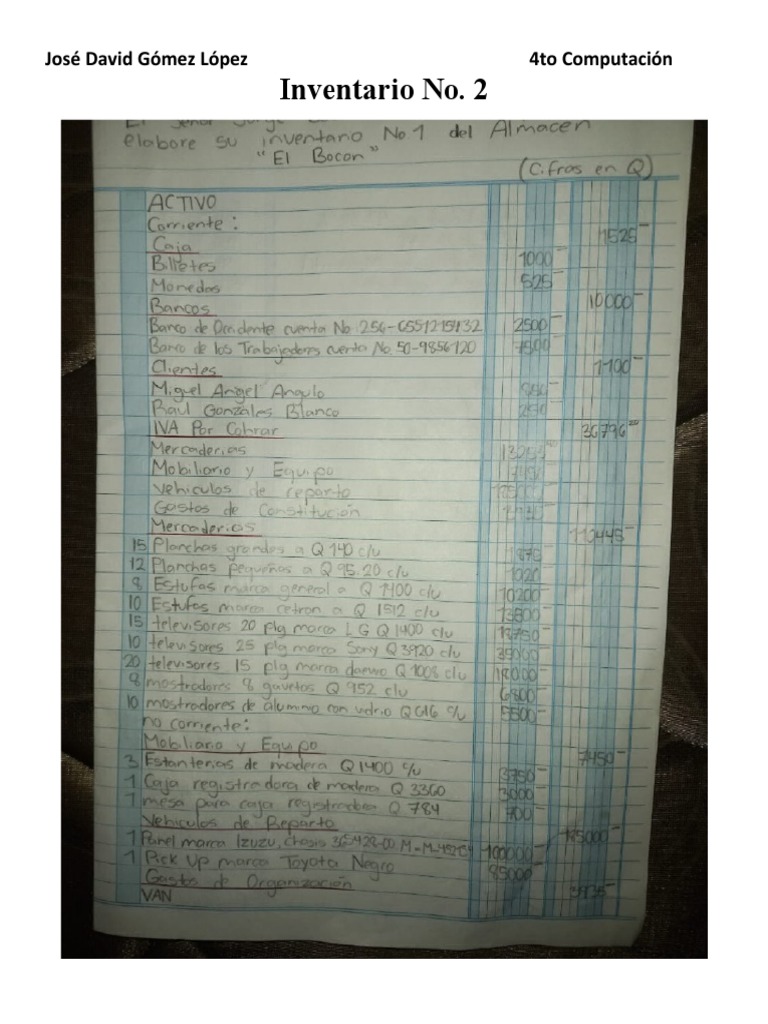 José David Gómez López 4to Computación
Inventario No. 2
El señor Jorge
elabore su inventario No.1 del Almacen
"El Bocon"
(Cifras en Q)
ACTIVO
Corriente:
Caja 1525
Billetes 1000
Monedas 525
Bancos 10000
Banco de Occidente cuenta No. 256-6551215432 2500
Banco de los Trabajadores cuenta No. 50-9856120 7500
Clientes 1100
Miguel Angel Angulo
Raul Gonzales Blanco
IVA Por Cobrar 36796
Mercaderias
Mobiliario y Equipo 7450
Vehiculos de reparto 185000
Gastos de Constitución
Mercaderias 110445
15 Planchas grandes a Q 140 c/u 1875
12 Planchas pequeñas a Q 95.20 c/u 1020
8 Estufas marca general a Q 1400 c/u 10200
10 Estufas marca cetron a Q 1512 c/u 13500
15 televisores 20 plg marca LG Q 1400 c/u 18750
10 televisores 25 plg marca Sony Q 3920 c/u 35000
20 televisores 15 plg marca daewo Q 1008 c/u 18000
8 mostradores 8 gavetas Q 952 c/u 6800
10 mostradores de aluminio con vidrio Q 616 c/u 5500
no corriente:
Mobiliario y Equipo 7450
3 Estanterias de madera Q 1400 c/u 3750
1 Caja registradora de madera Q 3360 3000
1 mesa para caja registradora Q 784 700
Vehiculos de Reparto 185000
1 Panel marca Izuzu, chasis 100000
1 Pick Up marca Toyota Negro 85000
Gasto de Organización
VAN